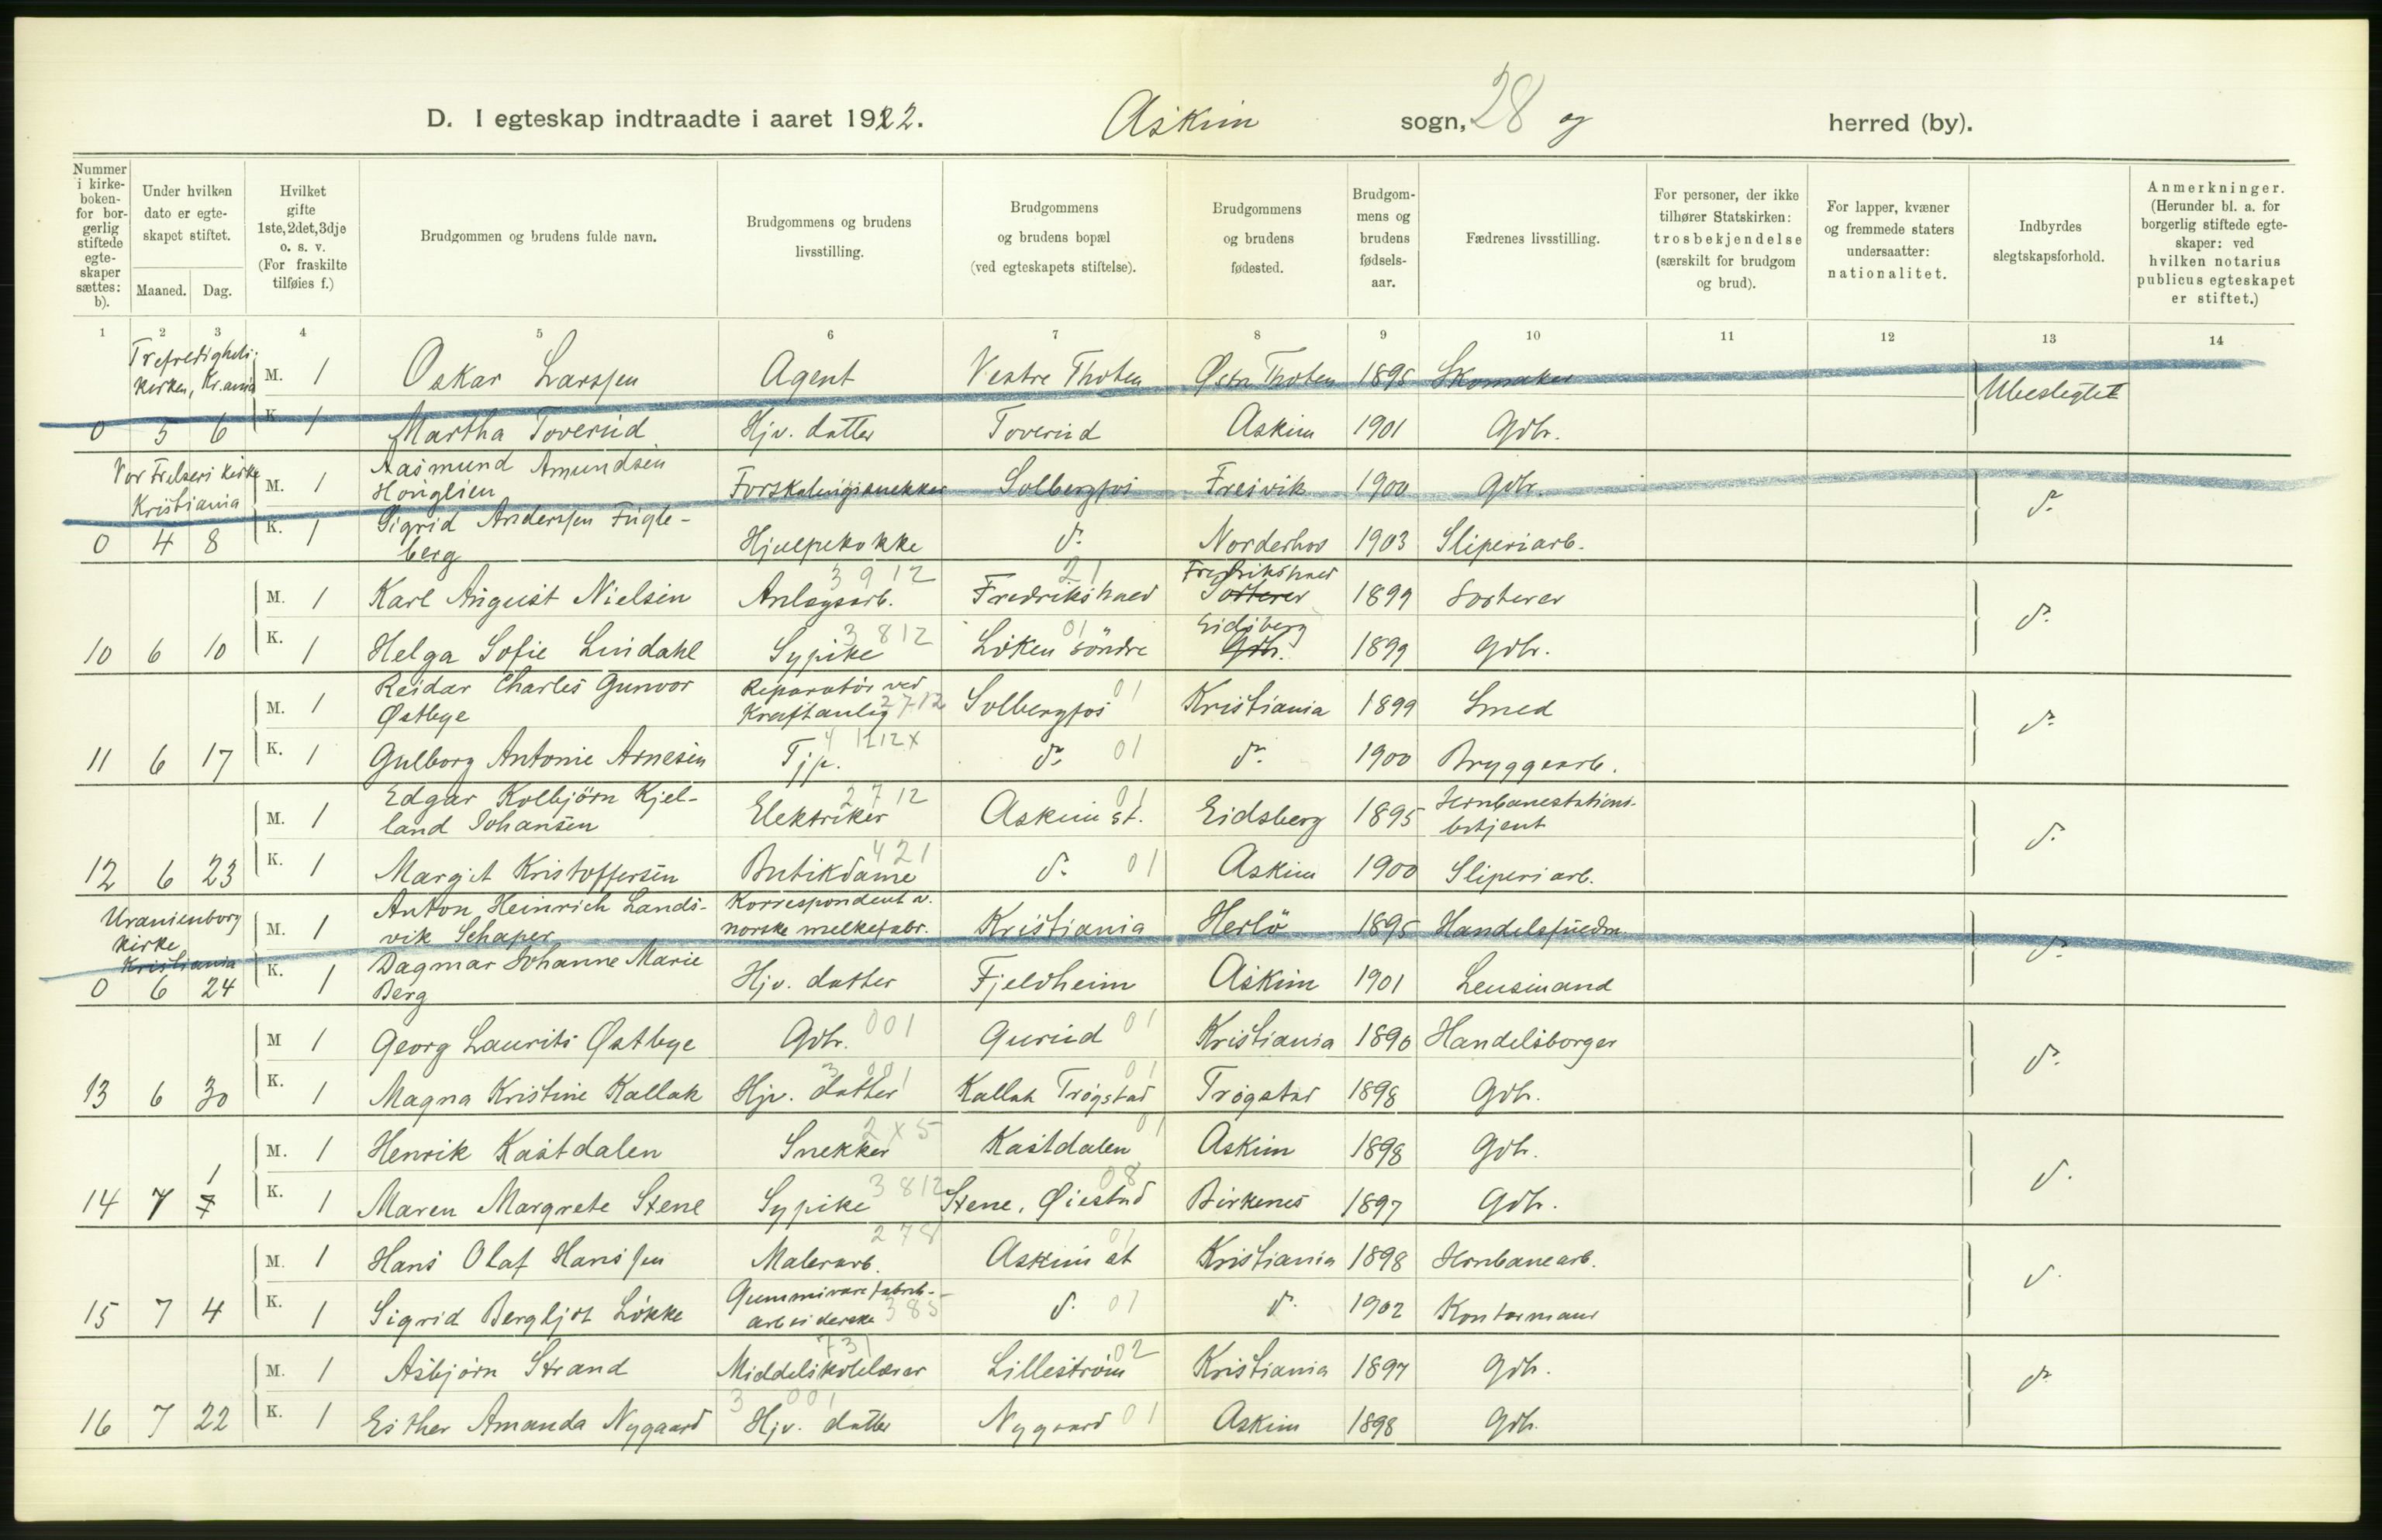 D. I egteskap indtraadte i aaret 1922. Askim sogn, 28 og herred (by).
Nummer i kirke-boken- for bor-gerlig stiftede egte-skaper sættes: b).
Under hvilken dato er egte-skapet stiftet.
Maaned. Dag.
Hvilket gifte 1ste, 2det, 3dje o. s. v. (For fraskilte tilføies f.)
Brudgommen og brudens fulde navn.
Brudgommens og brudens livsstilling.
Brudgommens og brudens bopæl (ved egteskapets stiftelse).
Brudgommens og brudens fødested.
Brudgom-mens og brudens fødsels-aar.
Fædrenes livsstilling.
For personer, der ikke tilhører Statskirken: trosbekjendelse (særskilt for brudgom og brud).
For lapper, kvæner og fremmede staters undersaatter: nationalitet.
Indbyrdes slegtskapsforhold.
Anmerkninger. (Herunder bl. a. for borgerlig stiftede egte-skaper: ved hvilken notarius publicus egteskapet er stiftet.)
1 2 3 4 5 6 7 8 9 10 11 12 13 14
Trefoldigheds-
kirken, Kr.ania
M. 1 Oskar Larssen Agent Vestre Thoten Østr Thoten 1895 Skomaker Ubeslegtet
0 3 6 K. 1 Martha Toverud Hjv. datter Toverud Askim 1901 Gdbr.
Vor Frelsers kirke
Kristiania
M. 1 Aasmund Amundsen
Honglien Forskalingssnekker Solbergfos Freivik 1900 Gdbr. do
0 4 8 K. 1 Sigrid Anderssen Fugle-
berg Hjælpekokke do Norderhov 1903 Sliperiarb.
3 9 12 21 Fredrikshald
M. 1 Karl August Nielsen Anlægsarb. Fredrikshald Sorterer 1899 Sorterer do
3 8 12 01 Eidsberg
10 6 10 K. 1 Helga Sofie Lindahl Sypike Løken søndre Gdbr. 1899 Gdbr.
M. 1 Reidar Charles Gunvor
Østbye Reparatør ved
Kraftanlæg 2712 Solbergfos 01 Kristiania 1899 Smed do
11 6 17 K. 1 Gulborg Antonie Arnesen Tjp. 4 1212x do 01 do 1900 Bryggearb.
M. 1 Edgar Kolbjörn Kjel-
land Johansen Elektriker 2712 Askim st. 01 Eidsberg 1895 Jernbanestations-
betjent do
12 6 23 K. 1 Margit Kristoffersen Butikdame 421 do 01 Askim 1900 Sliperiarb.
Uranienborg
kirke
Kristiania
M. 1 Anton Heinrich Lands-
vik Schaper Korrespondent v.
norske melkefabr. Kristiania Herlö 1895 Handelsfuldm. do
0 6 24 K. 1 Dagmar Johanne Marie
Berg Hjv. datter Fjeldheim Askim 1901 Lensmand
M 1 Georg Laurits Østbye Gdbr. 001 Gurud 01 Kristiania 1890 Handelsborger do
13 6 30 K. 1 Magna Kristine Kallak Hjv. datter 3 001 Kallak Trøgstad 01 Trøgstad 1898 Gdbr.
M. 1 Henrik Kastdalen Snekker 2x5 Kastdalen 01 Askim 1898 Gdbr. do
14 7 1 7 K. 1 Maren Margrete Stene Sypike 3812 Stene, Øiestad 08 Birkenes 1897 Gdbr.
M. 1 Hans Olaf Hanssen Malerarb. 278 Askim st 01 Kristiania 1898 Jernbanearb. do
15 7 4 K. 1 Sigrid Bergljot Løkke Gummivarefabrik-
arbeiderske 385 do 01 do 1902 Kontormand
M. 1 Asbjørn Strand Middelskolelærer 731 Lillestrøm 02 Kristiania 1897 Gdbr. do
16 7 22 K. 1 Esther Amanda Nygaard Hjv. datter 3 001 Nygaard 01 Askim 1898 Gdbr.